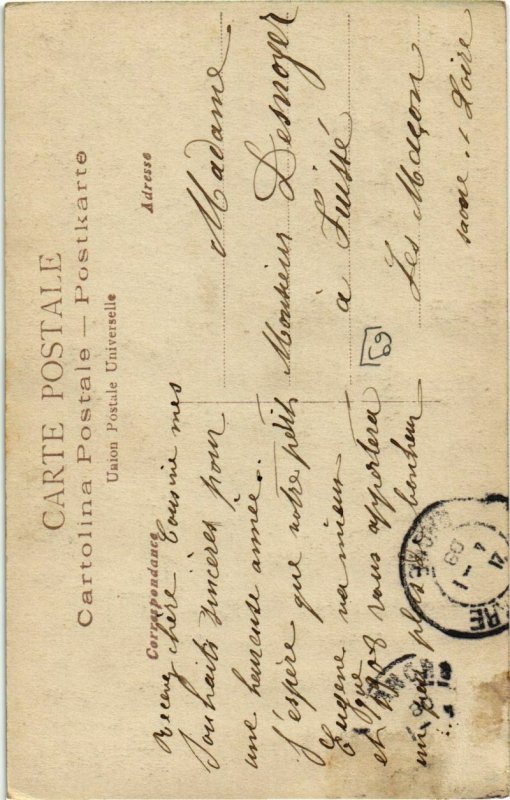 CARTE POSTALE
Cartolina Postale — Postkarte
Union Postale Universelle
Correspondance
Adresse
Recevez chère Cousine mes
souhaits sincères pour
une heureuse année.
J'espère que notre petit
Eugène va mieux
et que vous apportera
un peu plus bonheur
Madame
Monsieur Desnoyer
à Fuissé
Les Maçon
saone. & Loire
69
21
1
09